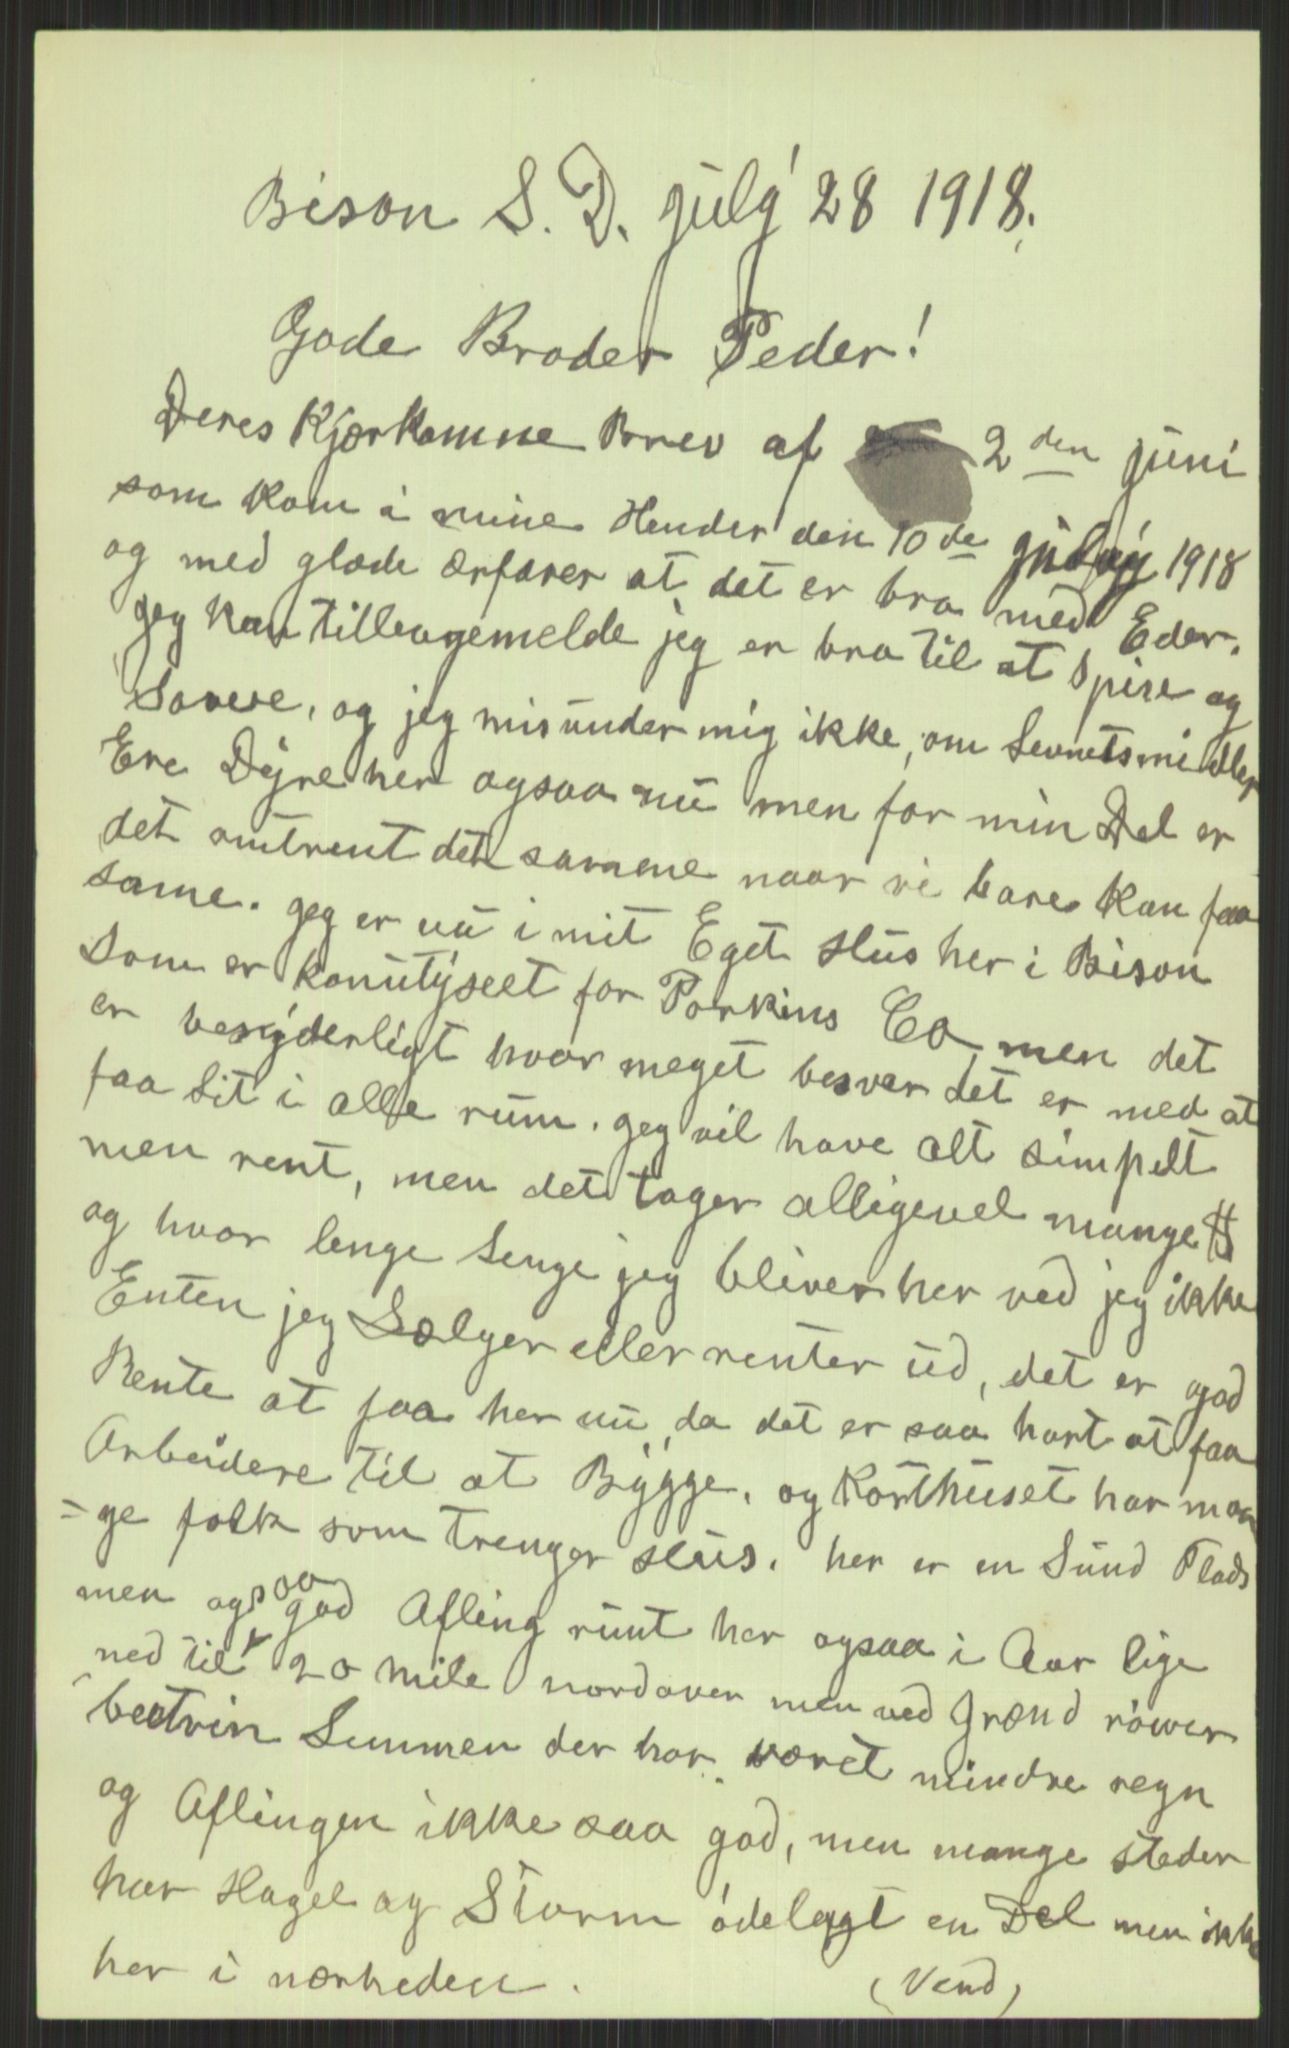 Bison S. D. july 28 1918.
Gode Broder Peder!
Deres Kjærkomne Brev af 2den juni
som kom i mine Hender den 10de july 1918
og med glæde Erfarer at det er bra med Eder.
jeg kan tilbagemelde jeg er bra til at Spise og
Sove, og jeg misunder mig ikke, om Levnetsmidler
Ere Dyre her ogsaa nu men for min Del er
det omtrent det samme naar vi bare kan faa
same. jeg er nu i mit Eget Hus her i Bison
som er kountyseet for Perkins Co, men det
er besyderligt hvor meget besver det er med at
faa Sit i alle rum. jeg vil have alt simpelt
men rent, men det tager alligevel mange $
og hvor lenge Lenge jeg bliver her ved jeg ikke
Enten jeg Sælger eller renter ud, det er god
Rente at faa her nu, da det er saa hart at faa
Arbeidere til at Bygge, og Korthuset har man
=ge folk som trenger Hus. her er en Sund Plads
men ogsaa god Afling runt her ogsaa i Aar lige
ned til 20 mile nordover men ved Grænd river
Lemmen der har været mindre regn
og Aflingen ikke saa god, men mange steder
har Hagel og Storm ödelagt en Del men ikke
her i nærheden. (Vend)